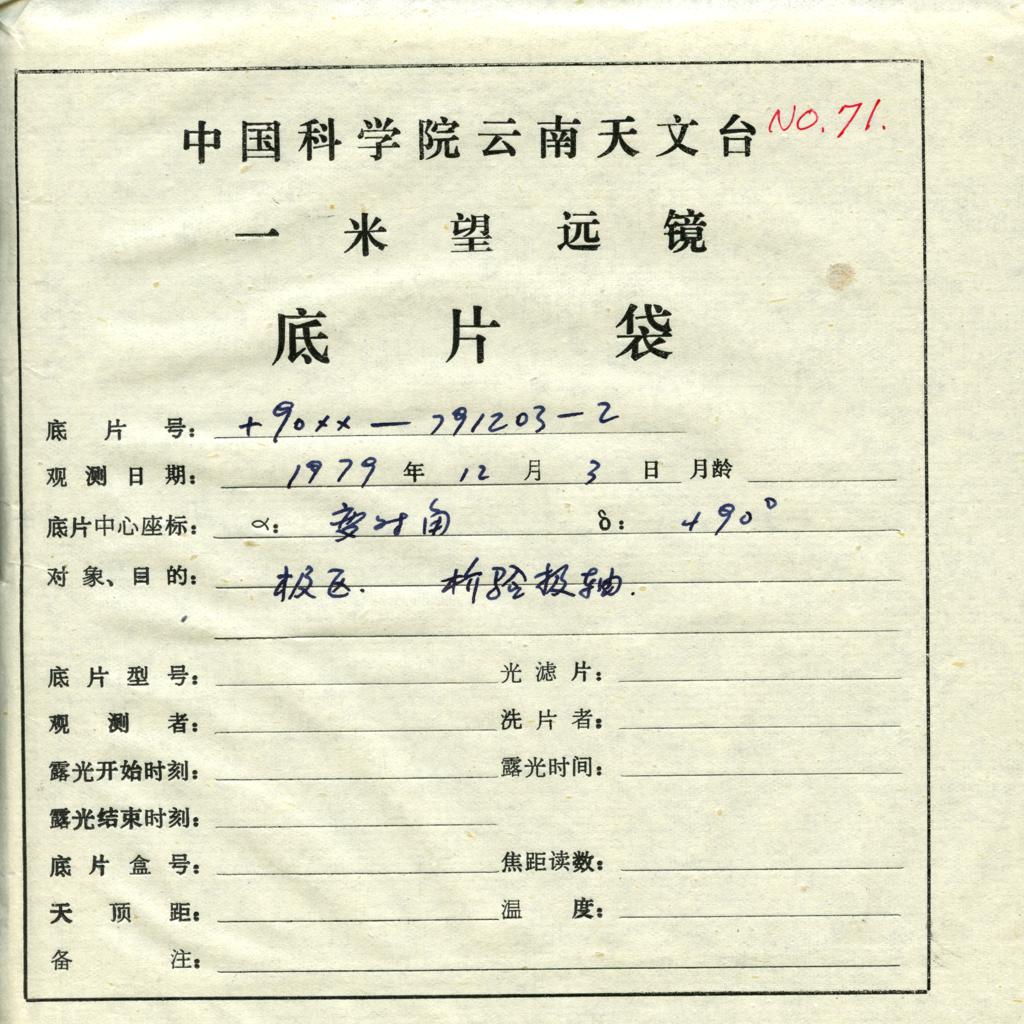 NO. 71.
中国科学院云南天文台
一米望远镜
底片袋
底片号: +90xx — 791203-2
观测日期: 1979 年 12 月 3 日 月龄
底片中心座标: α: 变时角 δ: +90°
对象、目的: 极区. 检验极轴.
底片型号: 光滤片:
观测者: 洗片者:
露光开始时刻: 露光时间:
露光结束时刻:
底片盒号: 焦距读数:
天顶距: 温度:
备注: